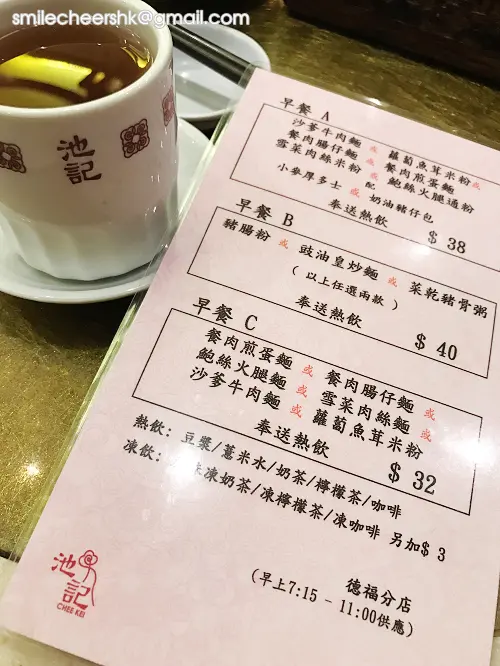 smilecheershk@gmail.com
池記
早餐 A
沙爹牛肉麵 或 蘿蔔魚茸米粉 或
餐肉腸仔麵 或 餐肉煎蛋麵 或
雪菜肉絲米粉 或 鮑絲火腿通粉
配
小麥厚多士 或 奶油豬仔包
奉送熱飲 $ 38
早餐 B
豬腸粉 或 豉油皇炒麵 或 菜乾豬骨粥
( 以上任選兩款 )
奉送熱飲 $ 40
早餐 C
餐肉煎蛋麵 或 餐肉腸仔麵 或
鮑絲火腿麵 或 雪菜肉絲麵 或
沙爹牛肉麵 或 蘿蔔魚茸米粉
奉送熱飲 $ 32
熱飲: 豆漿/薏米水/奶茶/檸檬茶/咖啡
凍飲: 凍奶茶/凍檸檬茶/凍咖啡 另加$ 3
德福分店
(早上7:15 - 11:00供應)
池記
CHEE KEI